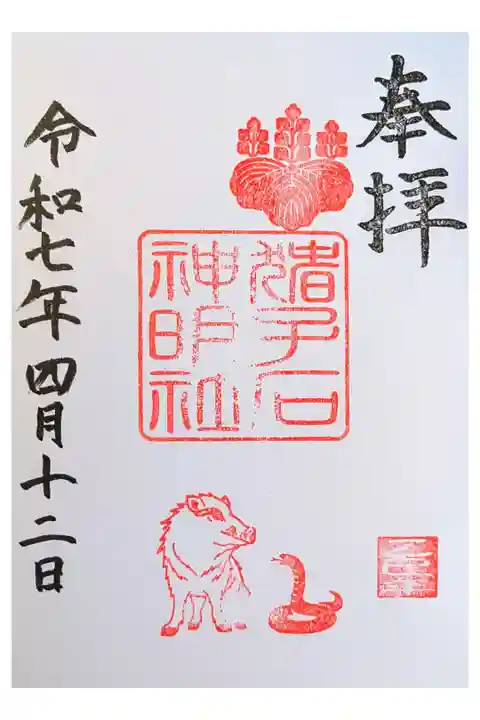 奉拝
猪子石
神明社
令和七年四月十二日